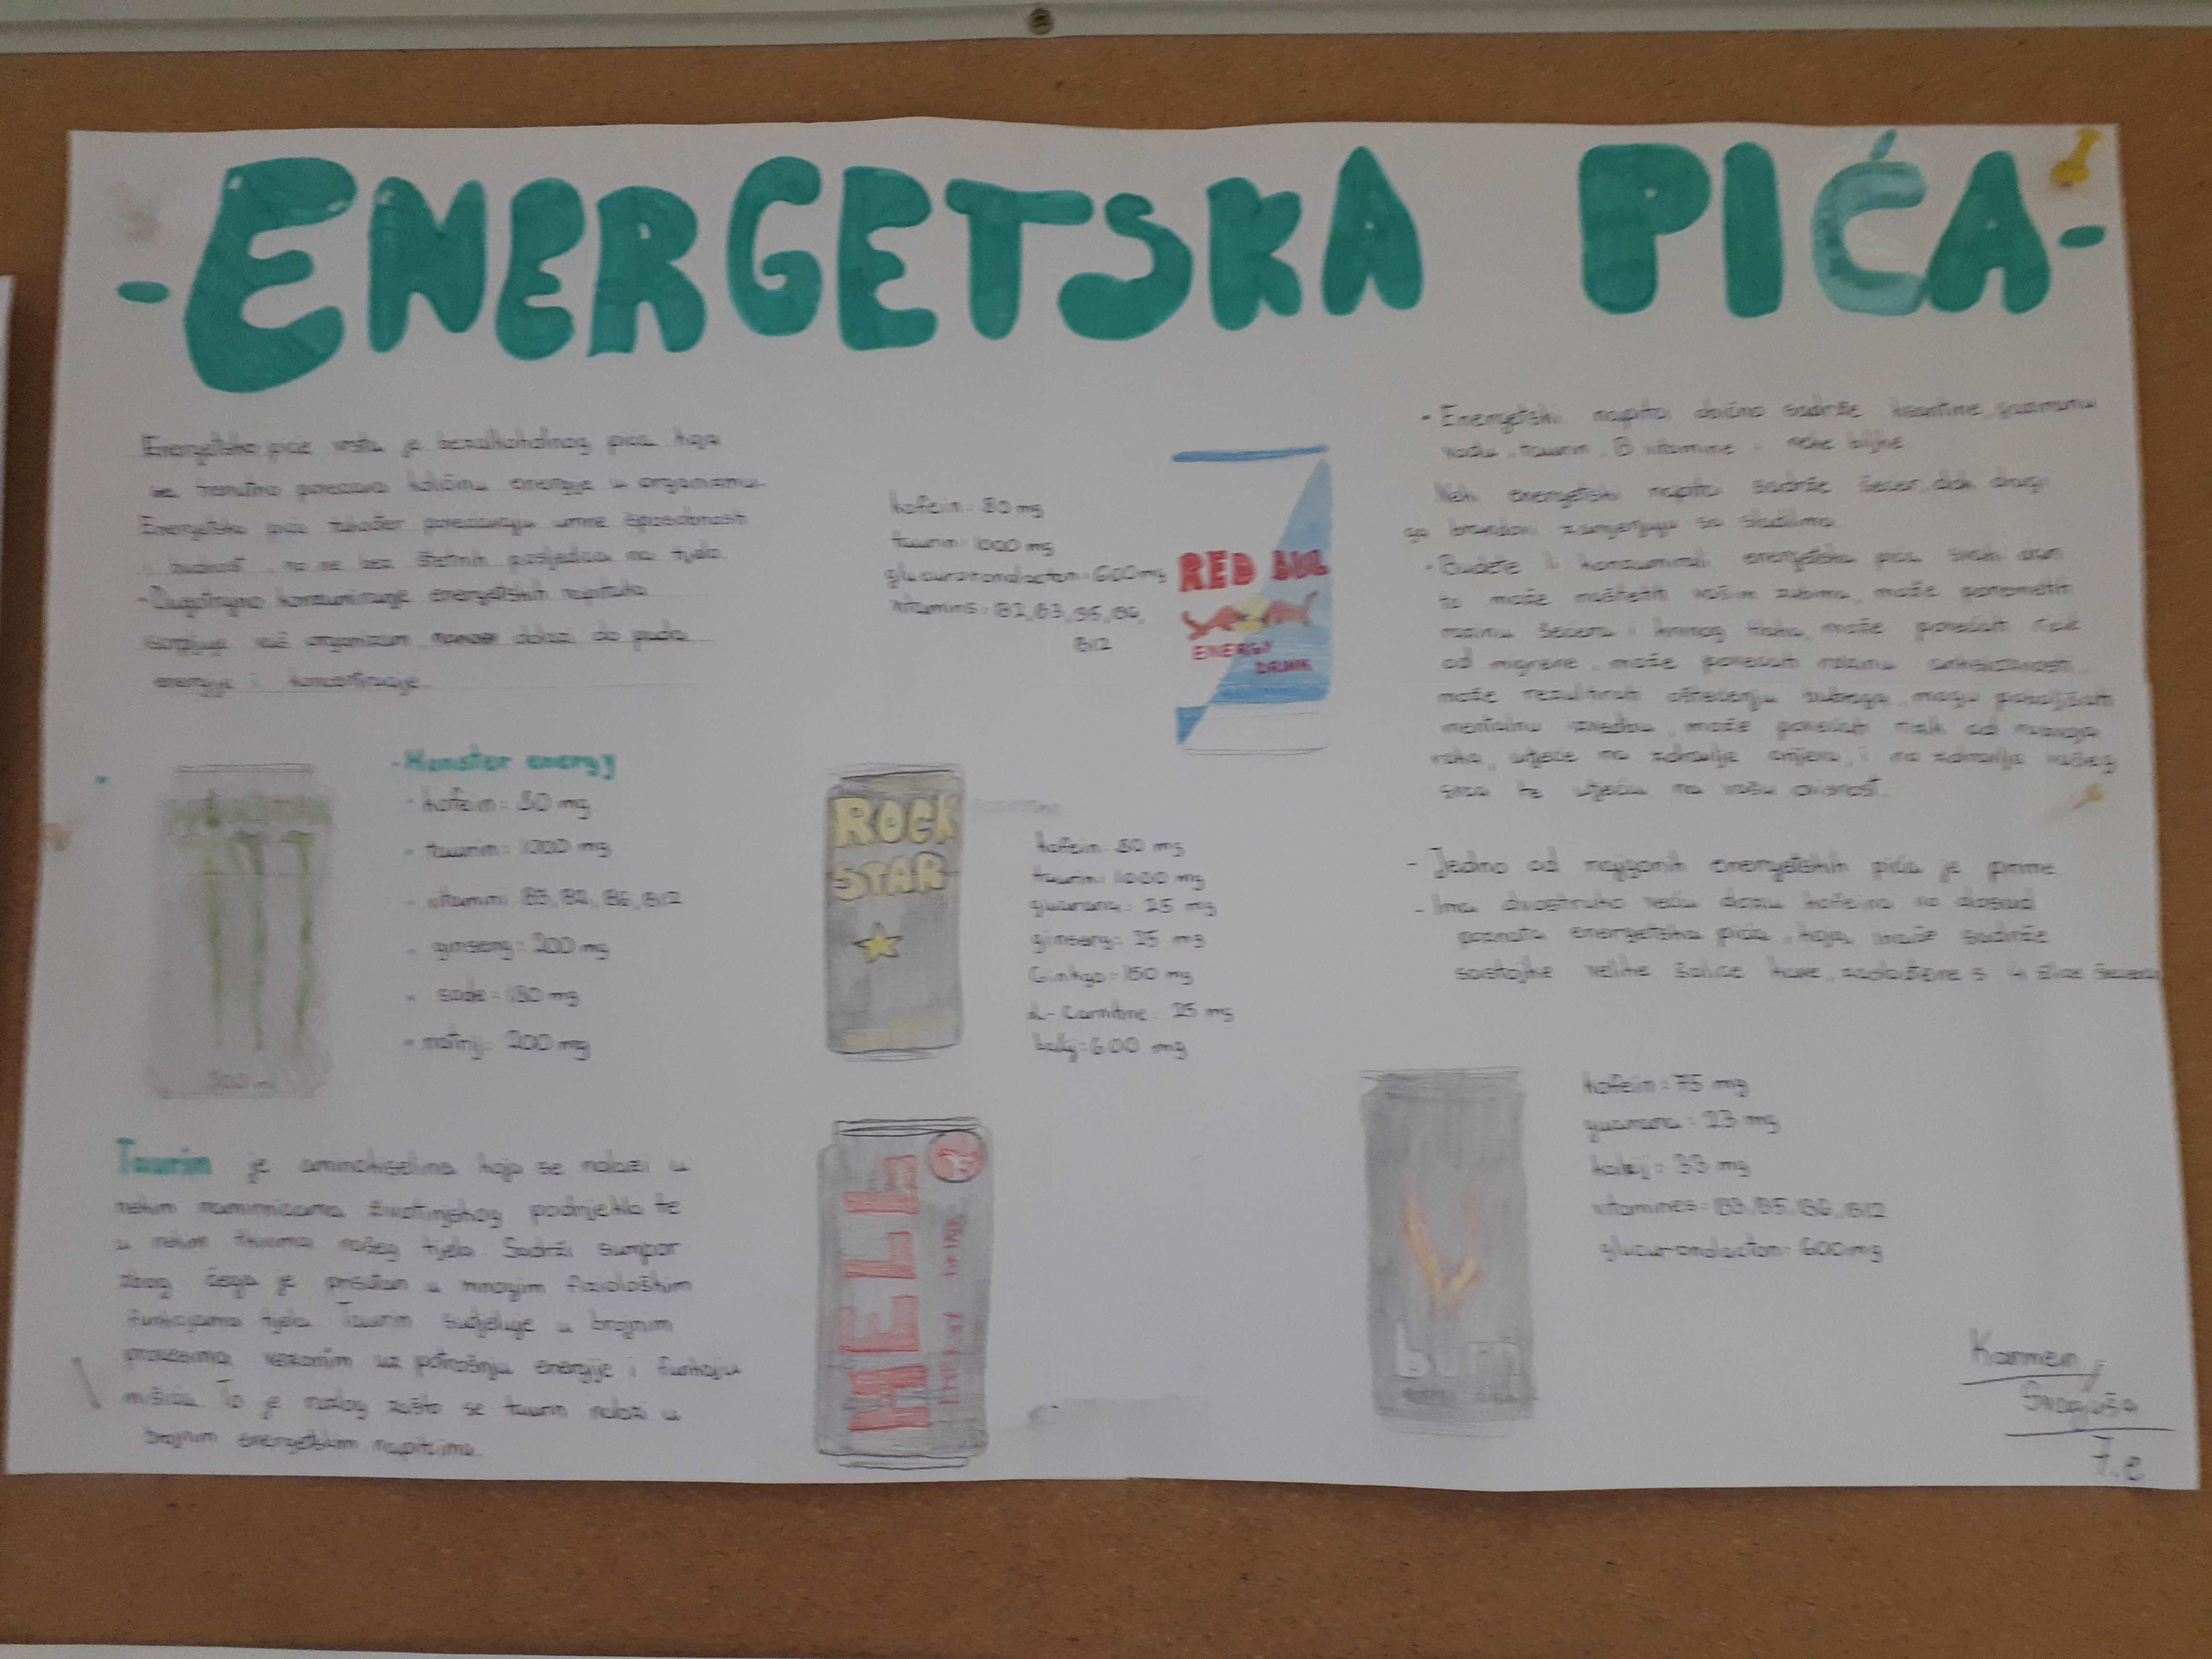 -ENERGETSKA PIĆA-
Energetsko piće vrsta je bezalkoholnog pića koja
se trenutno povećava količinu energije u organizmu.
Energetska pića također povećavaju umne sposobnosti
i budnost, no ne bez štetnih posljedica na tijelo.
-Dugotrajno konzumiranje energetskih napitaka
iscrpljuje vaš organizam, dolazi do pada
energije i koncentracije.
-Monster energy
- kofein: 80 mg
- taurin: 1000 mg
- vitamini: B3, B2, B6, B12
- ginseng: 200 mg
- natrij: 200 mg
Taurin je aminokiselina koja se nalazi u
nekim namirnicama životinjskog podrijetla te
u nekim tkivima našeg tijela. Sadrži sumpor
zbog čega je prisutan u mnogim fiziološkim
funkcijama tijela. Taurin sudjeluje u brojnim
procesima vezanim uz potrošnju energije i funkciju
mišića. To je razlog zašto se taurin nalazi u
brojnim energetskim napitcima.
kofein: 80 mg
taurin: 1000 mg
glucuronolacton: 600mg
vitamins: B2, B3, B5, B6,
B12
RED BUL
ENERGY
DRINK
ROCK
STAR
kofein: 80 mg
taurin: 1000 mg
guarana: 25 mg
ginseng: 25 mg
Ginkgo: 150 mg
L-Carnitine: 25 mg
600 mg
HELL
ENERGY DRINK
- Energetski napitci obično sadrže ksantine, gaziranu
vodu, taurin, B vitamine i neke biljke
Neki energetski napitci sadrže šećer, dok drugi
ga brandovi zamjenjuju sa sladilima
- Budete li konzumirali energetska pića svaki dan
to može naštetiti vašim zubima, može poremetiti
razinu šećera i krvnog tlaka, može povećati rizik
od migrene, može povećati razinu anksioznosti,
može rezultirati oštećenju bubrega, mogu poboljšati
mentalnu izvedbu, može povećati rizik od
raka, utječe na zdravlje crijeva, i na zdravlje vašeg
srca te utječu na vašu ovisnost.
- Jedno od najjačih energetskih pića je prime
- Ima dvostruko veću dozu kofeina no dosad
poznata energetska pića, koja inače sadrže
sastojke velike šalice kave, zaslađene s 4 žlice šećera
burn
kofein: 75 mg
guarana: 23 mg
33 mg
vitamines: B3, B5, B6, B12
glucuronolacton: 600mg
Karmen
7.e